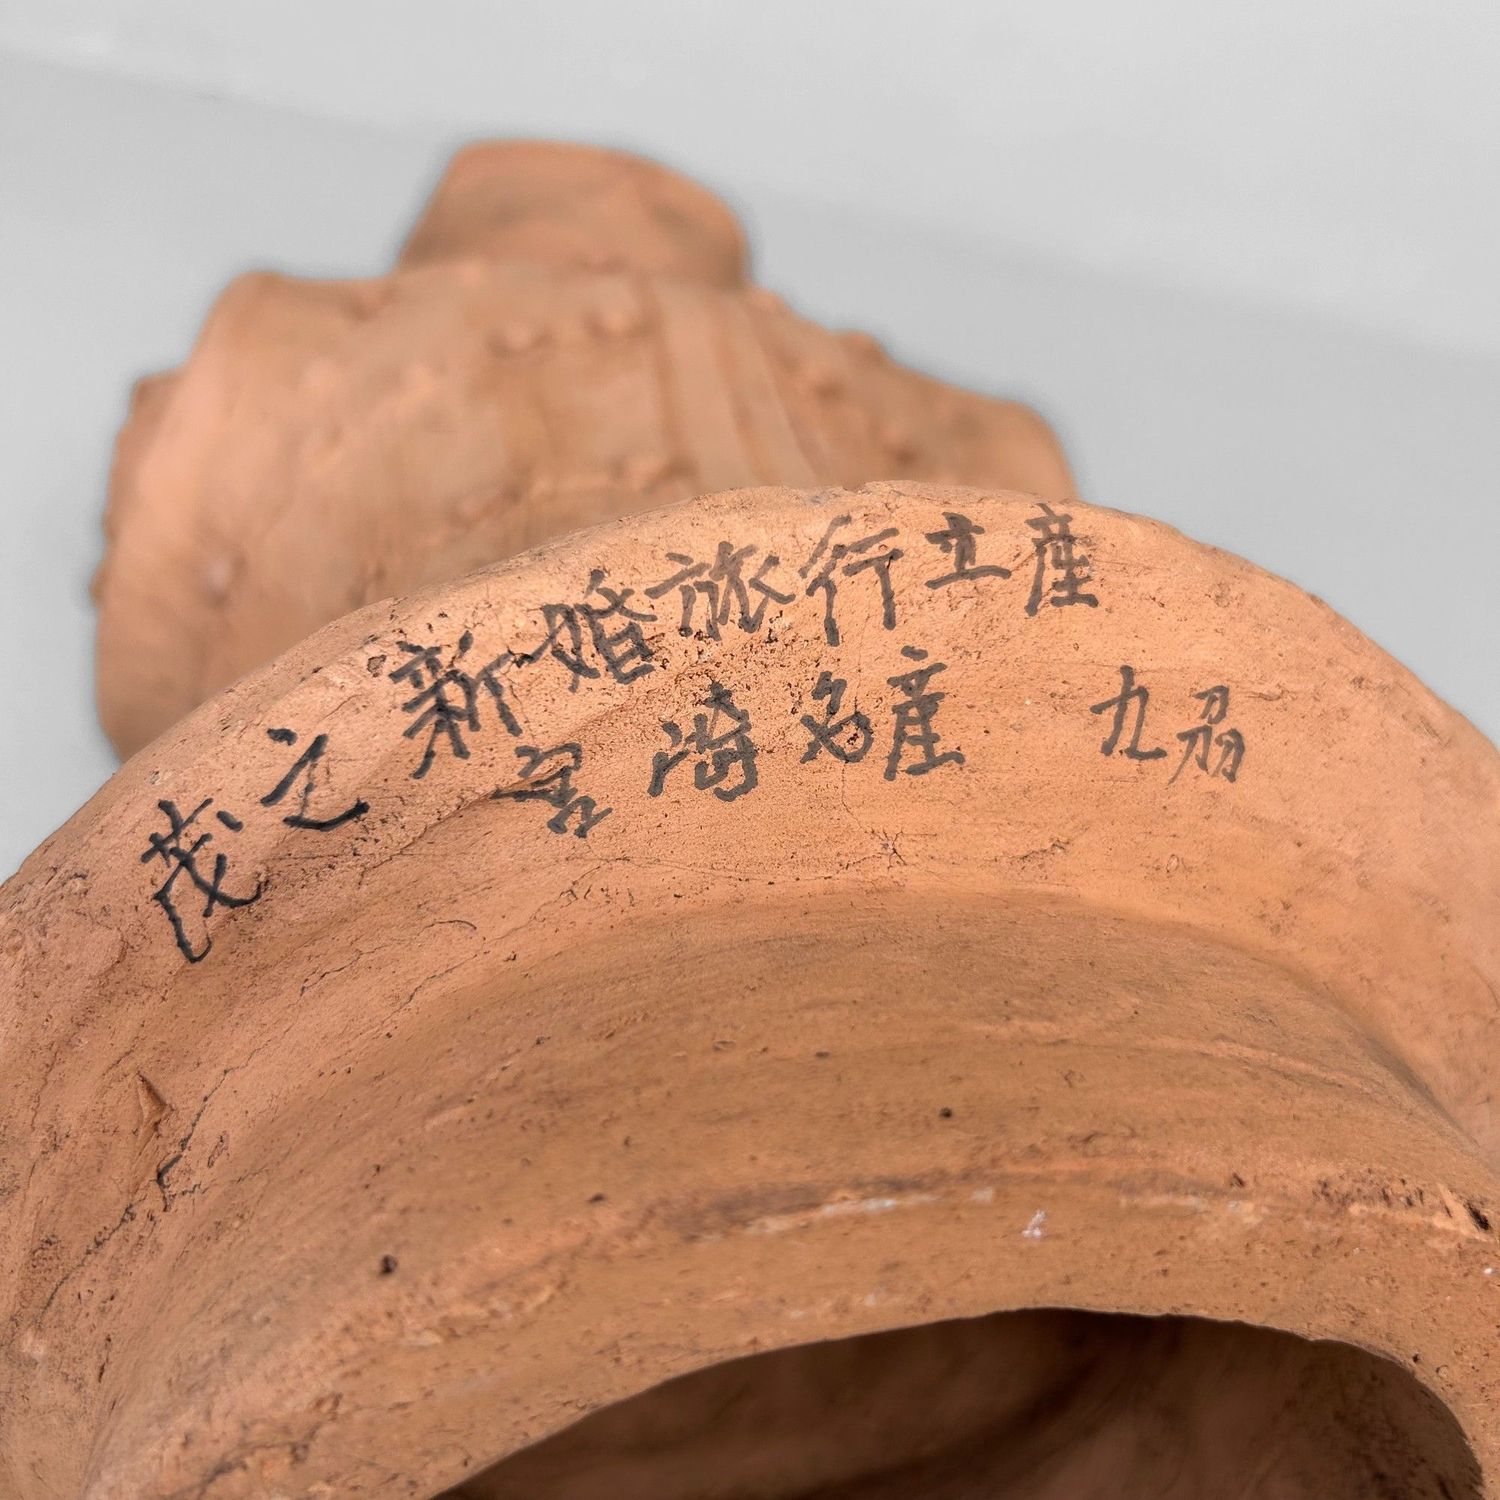 茂之 新婚旅行土産
宮崎名産 九刕